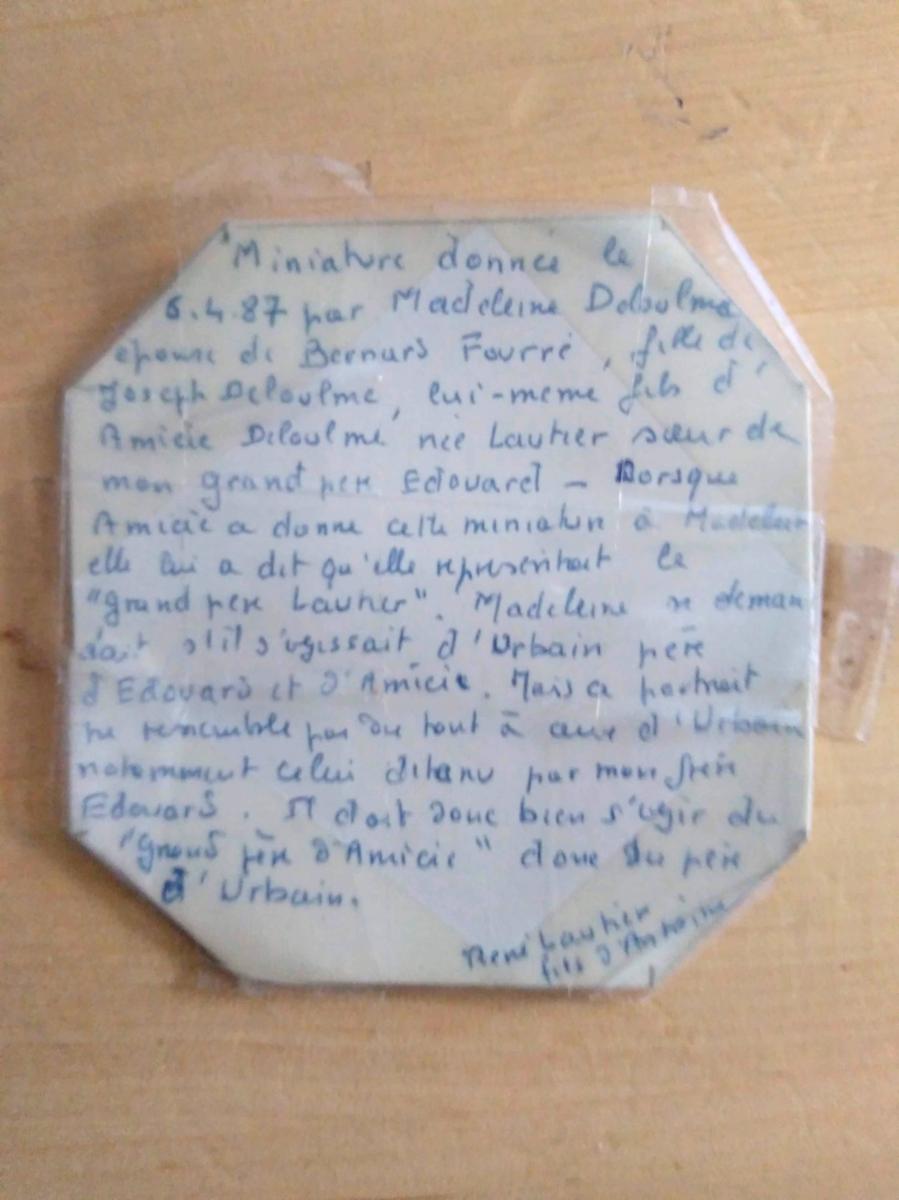 Miniature donnee le
6.4.87 par Madeleine Deloulme
epouse de Bernard Fourré, fille de
Joseph Deloulme, lui-meme fils d'
Amicie Deloulme née Lautier sœur de
mon grand pere Edouard - Lorsque
Amicie a donne cette miniature à Madeleine
elle lui a dit qu'elle representait le
"grand pere Lautier". Madeleine se deman
dait s'il s'agissait d'Urbain père
d'Edouard et d'Amicie. Mais ce portrait
ne ressemble pas du tout à ceux d'Urbain
notamment celui detenu par mon frere
Edouard. Il doit donc bien s'agir du
"Grand père d'Amicie" donc du père
d'Urbain.
René Lautier
fils d'Antoine